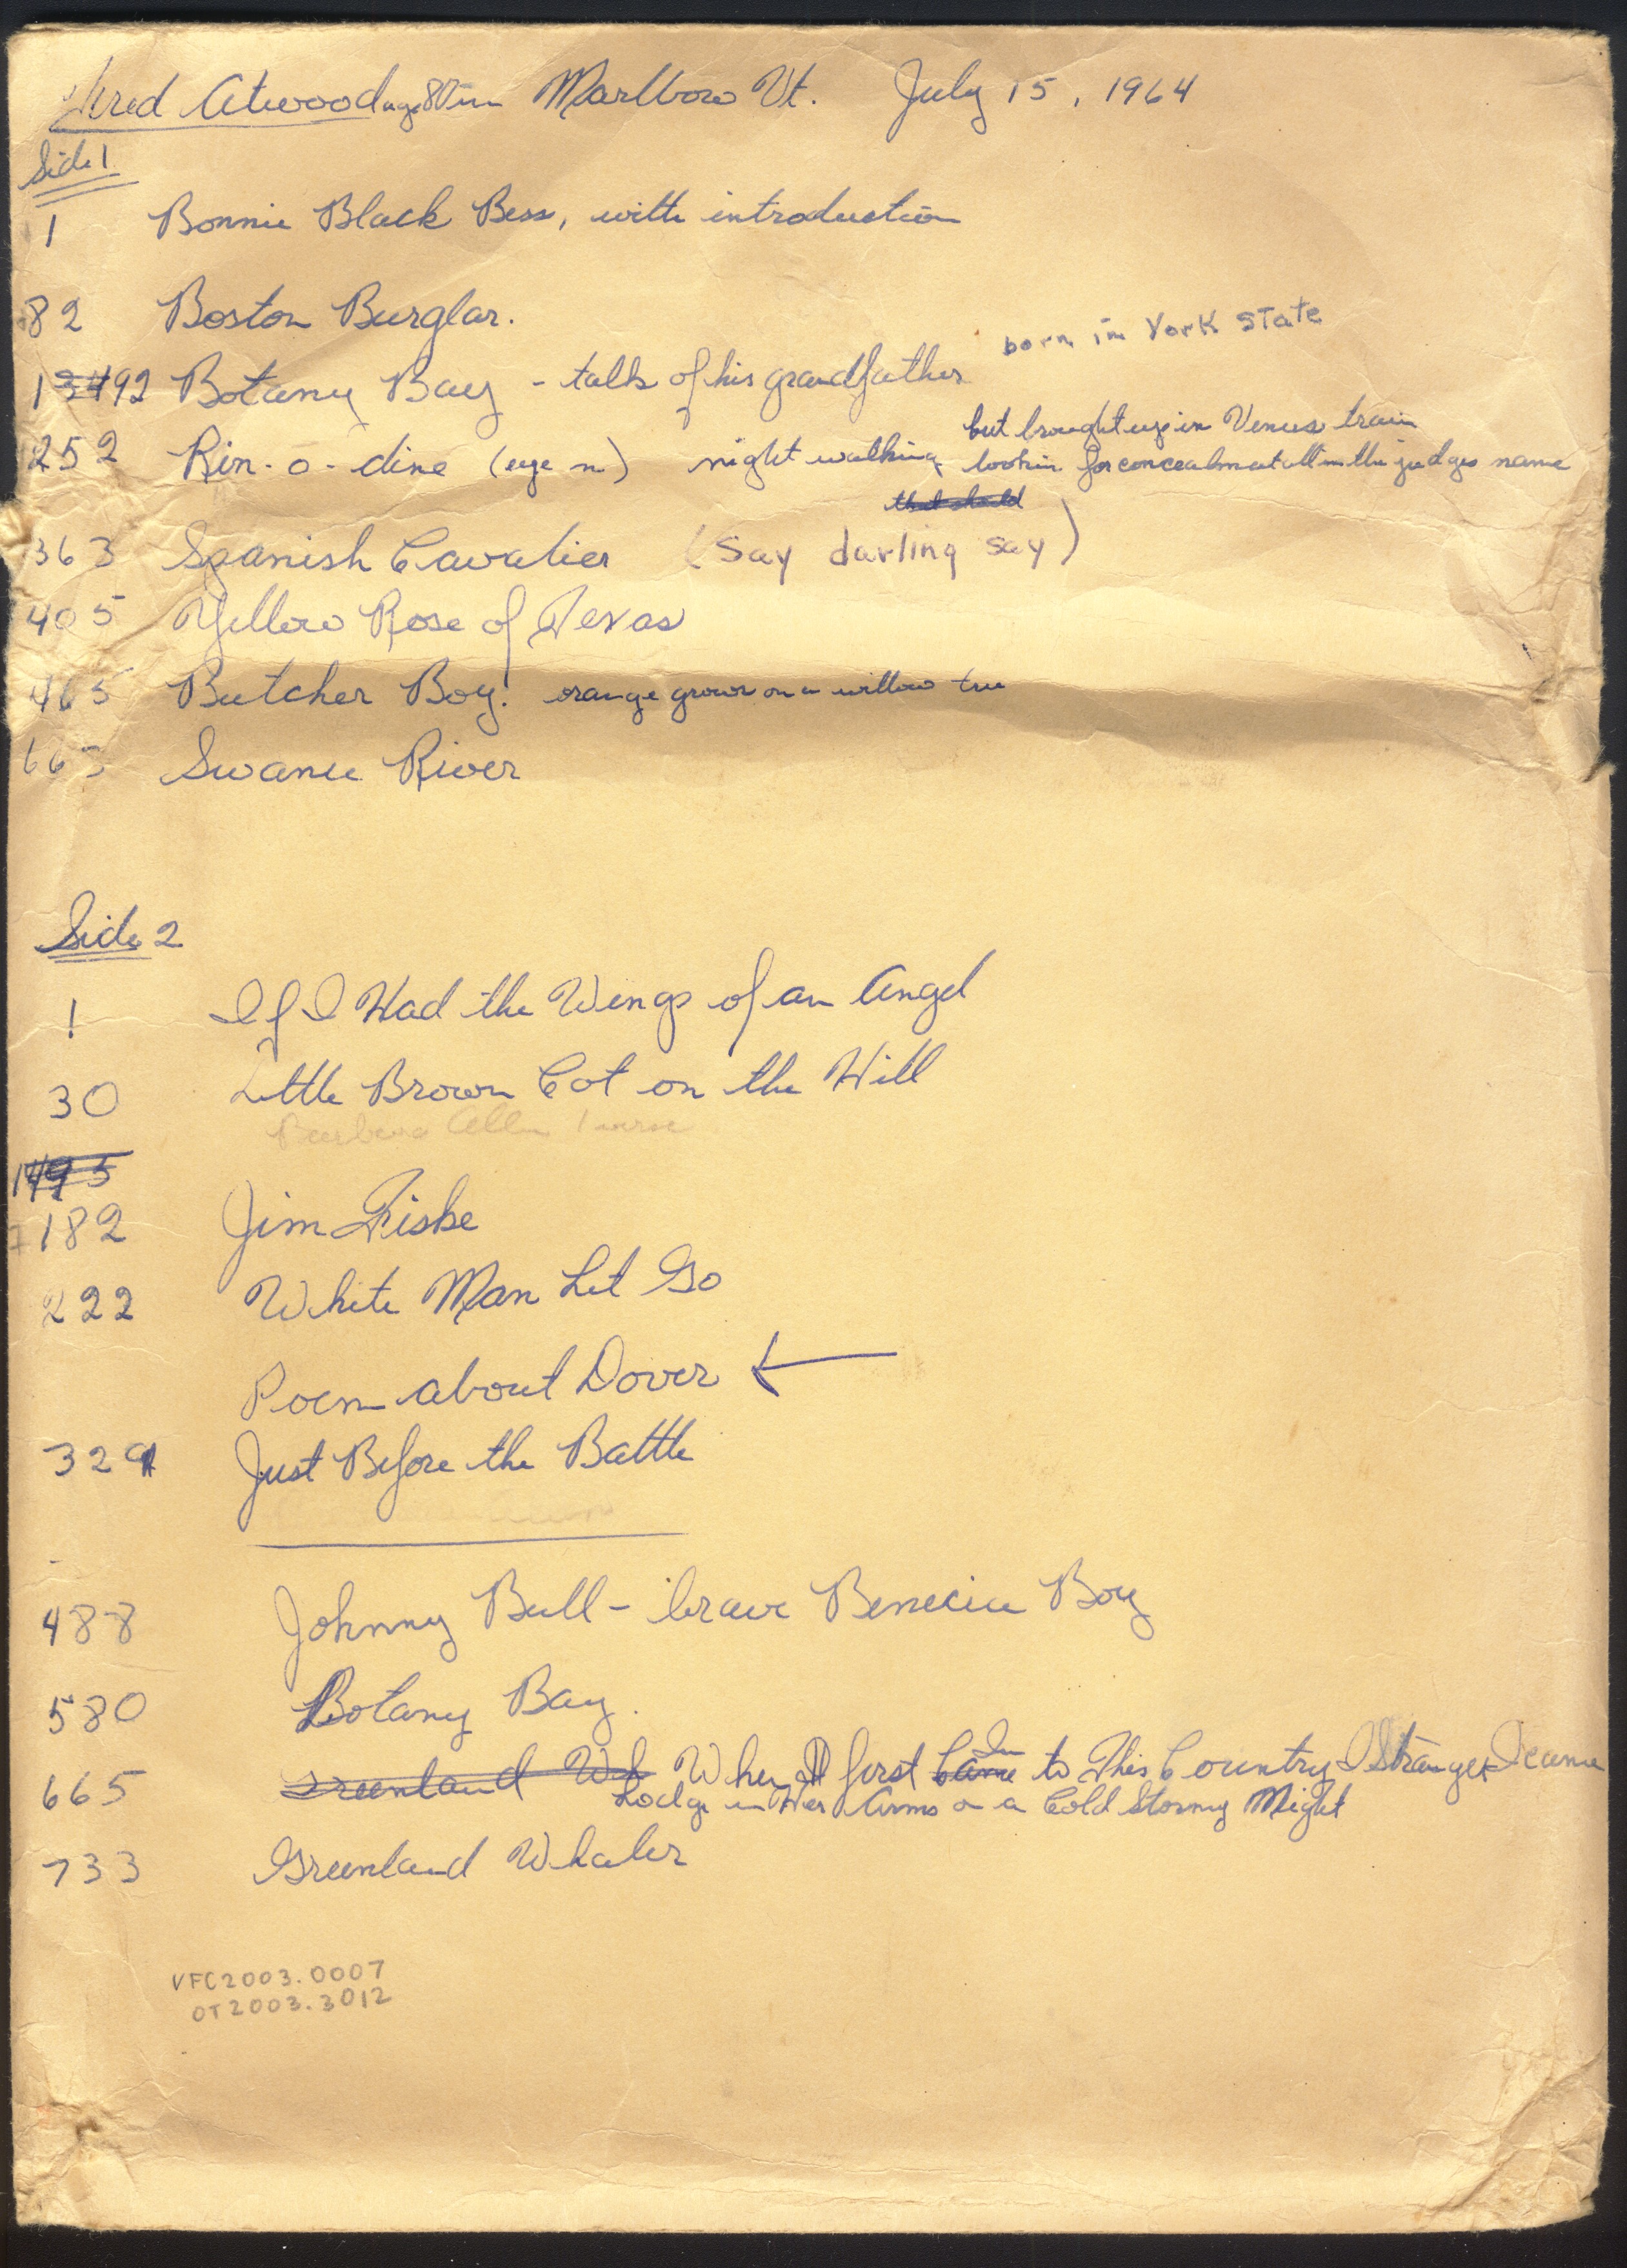 Fred Atwood age 80 in Marlboro Vt. July 15, 1964
Side 1
1 Bonnie Black Bess, with introduction
82 Boston Burglar.
born in York State
192 Botany Bay - talk of his grandfather
but brought up in Venus train
252 Rin-o-dine (eye n) night walking lookin for concealment all in the judges name
363 Spanish Cavalier (Say darling say)
405 Yellow Rose of Texas
465 Butcher Boy. orange grows on a willow tree
665 Swanee River
Side 2
1 If I Had the Wings of an Angel
30 Little Brown Cot on the Hill
Barbara Allen 1 verse
182 Jim Fiske
222 White Man Let Go
Poem about Dover ←
329 Just Before the Battle
488 Johnny Bull - brave Benecia Boy
580 Botany Bay.
665 Greenland When I first to This Country I Stranger I came
Lodge in Her Arms on a Cold Stormy Night
733 Greenland Whaler
VFC2003.0007
OT2003.3012